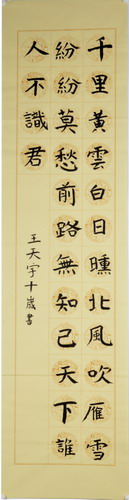 千里黃雲白日曛北風吹雁雪
紛紛莫愁前路無知己天下誰
人不識君
王天宇十歲書